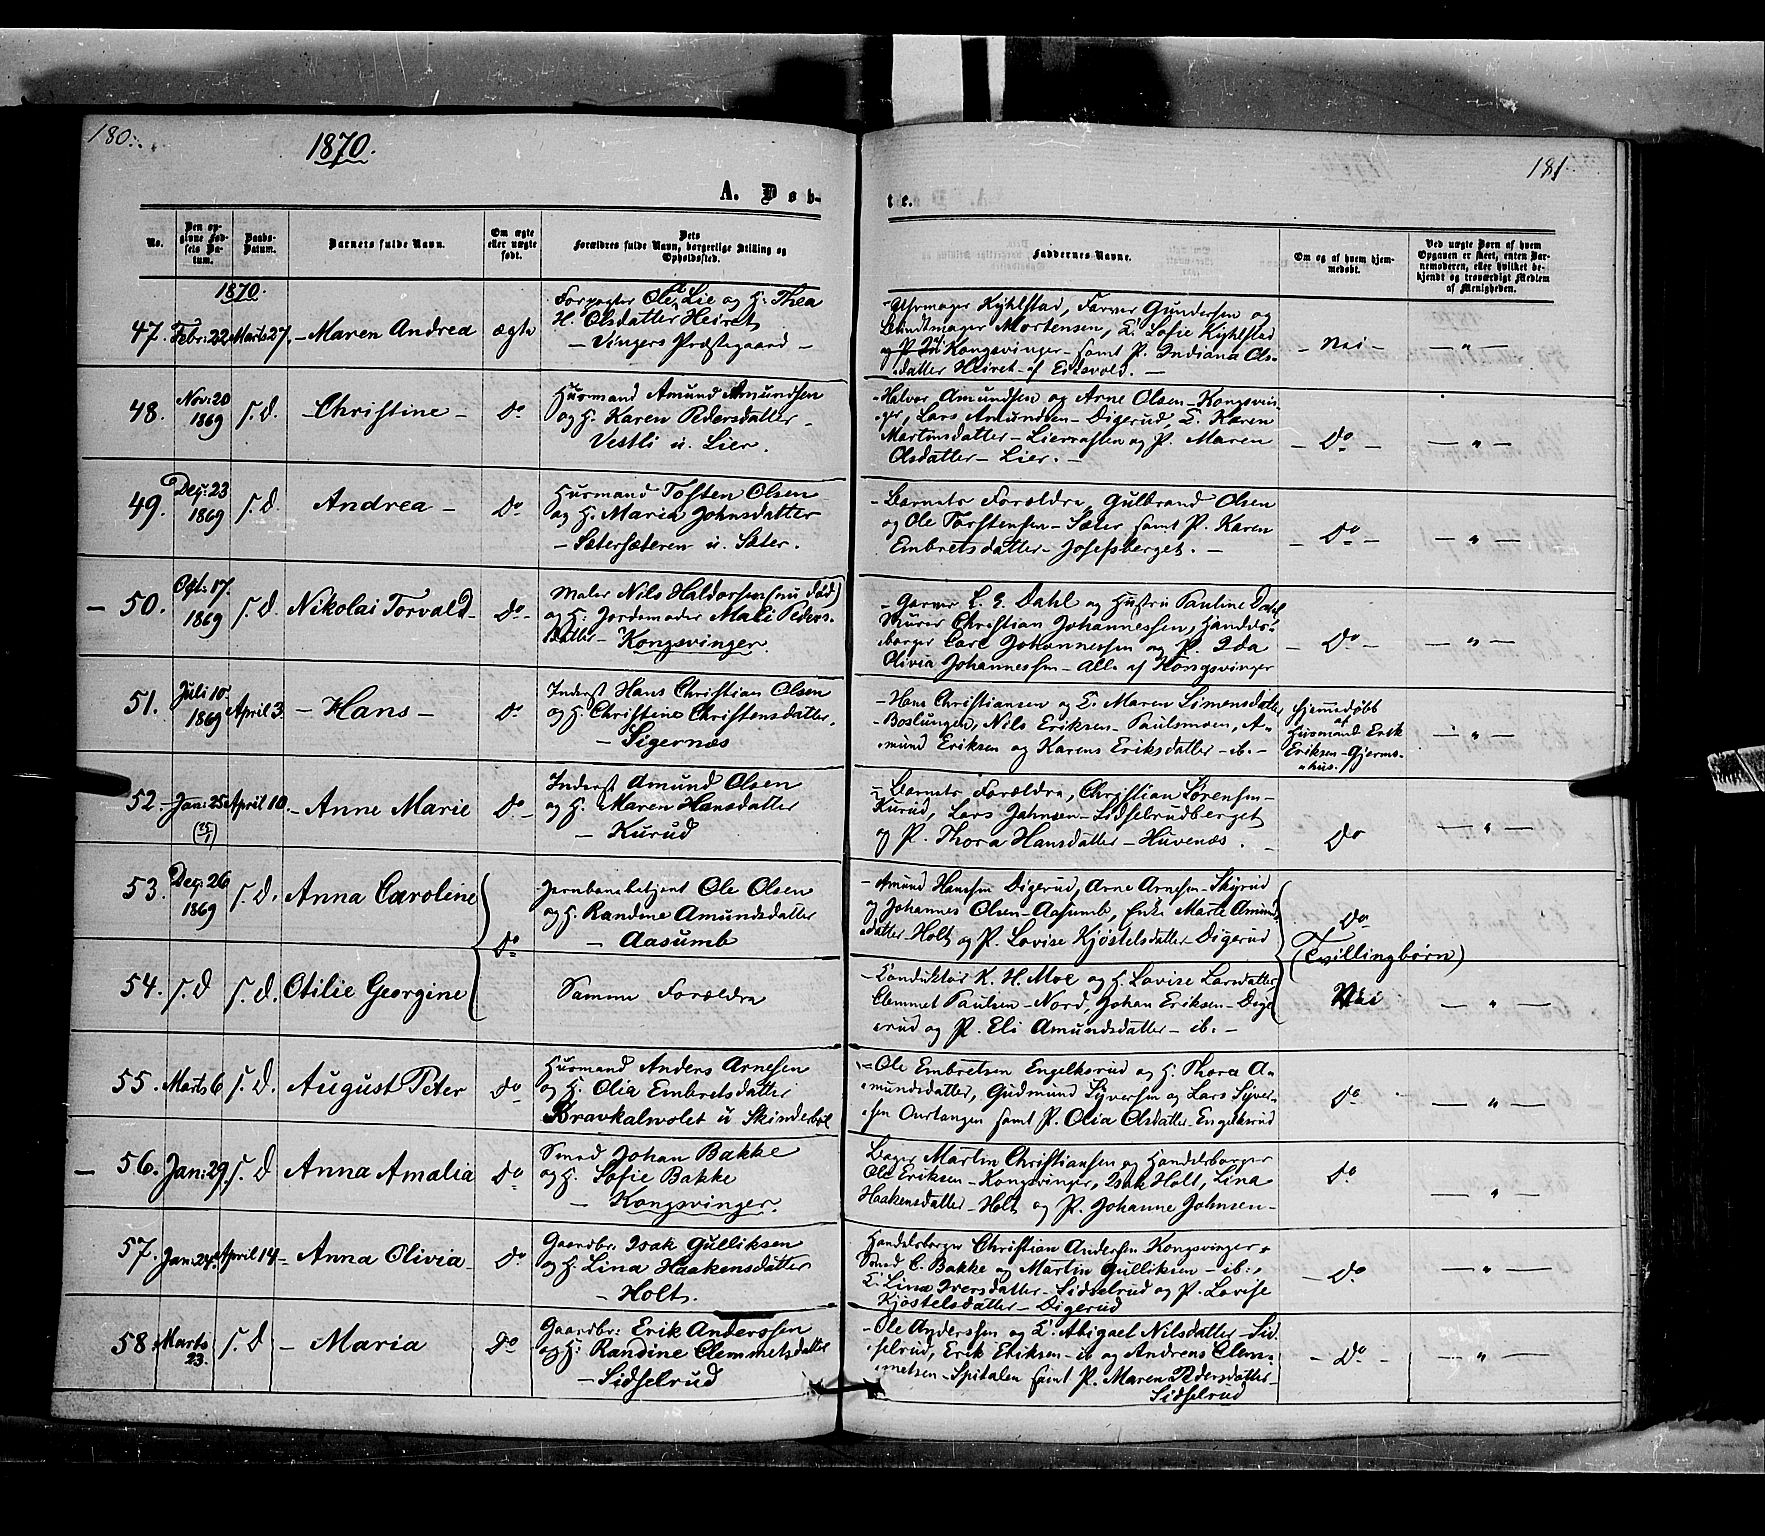 180.
1870.
A. Døb-
No.
Den op-
givne Fød-
sels Da-
tum.
Daabs-
Datum.
Barnets fulde Navn.
Om ægte
eller uægte
født.
Dets
Forældres fulde Navn, borgerlige Stilling og
Opholdssted.
1870.
47. Febr: 22 Marts 27. – Maren Andrea ægte
Forpagter Ole Lie og H: Thea
H. Olsdatter Heiret
– Vingers Præstegaard –
48. Nov: 20 1869 s. d. Christine – do
Husmand Amund Amundsen
og H. Karen Pedersdatter –
Vestli u. Lier.
49. Dez: 23 1869 s. d. Andrea – do
Husmand Tosten Olsen
og H. Maria Johnsdatter
– Sætersæteren u. Sæter.
– 50. Oct: 17. 1869 s. d. Nikolai Torvald – do –
Maler Nils Haldorsen (nu død)
og H. Jordemoder Mali Peders-
datter – Kongsvinger.
51. Juli 10 1869 April 3 – Hans – do
Inderst Hans Christian Olsen
og H. Christine Christensdatter.
– Sigernæs
52. Jan: 25 April 10 – Anne Marie do –
(25/1)
Inderst Amund Olsen
og H. Maren Hansdatter
– Kurud
53. Dez: 26 1869 s. d. Anna Caroline
do
Jernbanebetjent Ole Olsen
og H. Randine Amundsdatter
– Aasumb
54. s. d s. d. Otilie Georgine
Samme Forældre
55. Marts 6 s. d. August Peter do
Husmand Anders Arnesen
og H. Olia Embretsdatter
Bravkalvolet u Skinderbøl
– 56. Jan: 29. s. d Anna Amalia do
Smed Johan Bakke
og H. Sofie Bakke
– Kongsvinger.
57. Jan: 24. April 14 – Anna Olivia – do
Gaardbr. Isak Gulliksen
og H. Lina Haakensdatter
– Holt.
58 Marts 23. s. d – Maria do
Gaardbr: Erik Anderssen
og H: Randine Clemmetsdatter
– Sidselrud
181
te.
Faddernes Navne.
Om og af hvem hjem-
medøbt.
Ved uægte Børn af hvem
Opgaven er skeet, enten Bar-
nemoderen, eller hvilket be-
kjendt og troværdigt Medlem
af Menigheden.
Kyhlstad, Farver Gundersen og
Mortensen, E. Sofie Kyhlstad
Kongsvinger – samt P. Indiana Ols-
datter Heiret – af Eidsvold. –
– Nei –
– " –
Halvor Amundsen og Arne Olsen – Kongsvin-
ger, Lars Amundsen – Digerud, E. Karen
Martinsdatter – Lieraasen og P. Maren
Olsdatter – Lier. –
– do –
– " –
– Barnets Forældre, Gulbrand Olsen
og Ole Torstensen – Sæter samt P. Karen
Embretsdatter – Josefsberget. –
– do –
– " –
– Garver L. E. Dahl og Hustru Pauline Dahl
Murer Christian Johannessen, Handels-
borger Carl Johannessen og P. Ida
Olivia Johannessen – Alle af Kongsvinger
– do –
– " –
– Hans Christiansen og E. Maren Simensdatter
– Boslungen, Nils Eriksen – Paulsmoen, A-
mund Eriksen og Karens Eriksdatter – ib. –
Hjemmedøbt
af
Husmand Erik
Eriksen – Gjerms-
hus.
– " –
– Barnets Forældre, Christian Sørensen –
Kurud, Lars Jahnsen – Sidselrudberget
og P. Thora Hansdatter – Huvenæs. –
do
– " –
– Amund Hanssen Digerud, Arne Arnesen – Skyrud
og Johannes Olsen – Aasumb, Enke Marte Amunds-
datter – Holt og P. Lovise Kjøstelsdatter – Digerud
do
(Tvillingbørn)
– Conduktør K. H. Moe og H. Lovise Larsdatter,
Clemmet Paulsen – Nord, Johan Eriksen – Dige-
rud og P. Eli Amundsdatter – ib. –
Nei
– " –
– Ole Embretsen Engelksrud og H. Thora A-
mundsdatter, Gudmund Syversen og Lars Syver-
sen Ourlangen samt P. Olia Olsdatter – Engelksrud
do
– " –
Bager Martin Christiansen og Handelsborger
Ole Eriksen – Kongsvinger, Isak Holt, Lina
Haakensdatter – Holt og P. Johanne Johnsen –
do
– " –
Handelsborger Christian Andersen Kongsvinger,
Smed C. Bakke og Martin Gulliksen – ib:,
E. Lina Iversdatter – Sidselrud og P. Lovise
Kjøstelsdatter – Digerud
– do
– " –
– Ole Anderssen og E. Abigael Nilsdatter – Sid-
selrud, Erik Eriksen – ib og Andreas Clem-
metsen – Spitalen samt P. Maren Pedersdatter –
Sidselrud
– do –
– " –